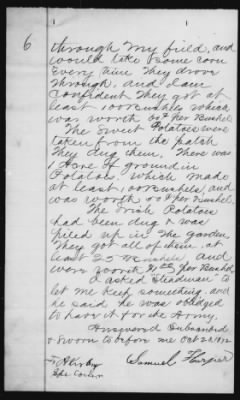 6
through my field, and
would take some corn
every time they drove
through, and I am
confident they got at
least 100 Bushels which
was worth 60¢ per Bushel.
The Sweet Potatoes were
taken from the patch
they dug them, There was
1 Acre of ground in
Potatoes, which made
at least 100 Bushels, and
was worth 50¢ per Bushel.
The Irish Potatoes
had been dug & was
piled up in the garden,
They got all of them, at
least 25 Bushels, and
were worth per Bushel
I asked Steadman to
let me keep something, and
he said he was obliged
to have it for the Army.
Answered Subscribed
& Sworn to before me Oct 1872
Samuel
Spl. Comr.